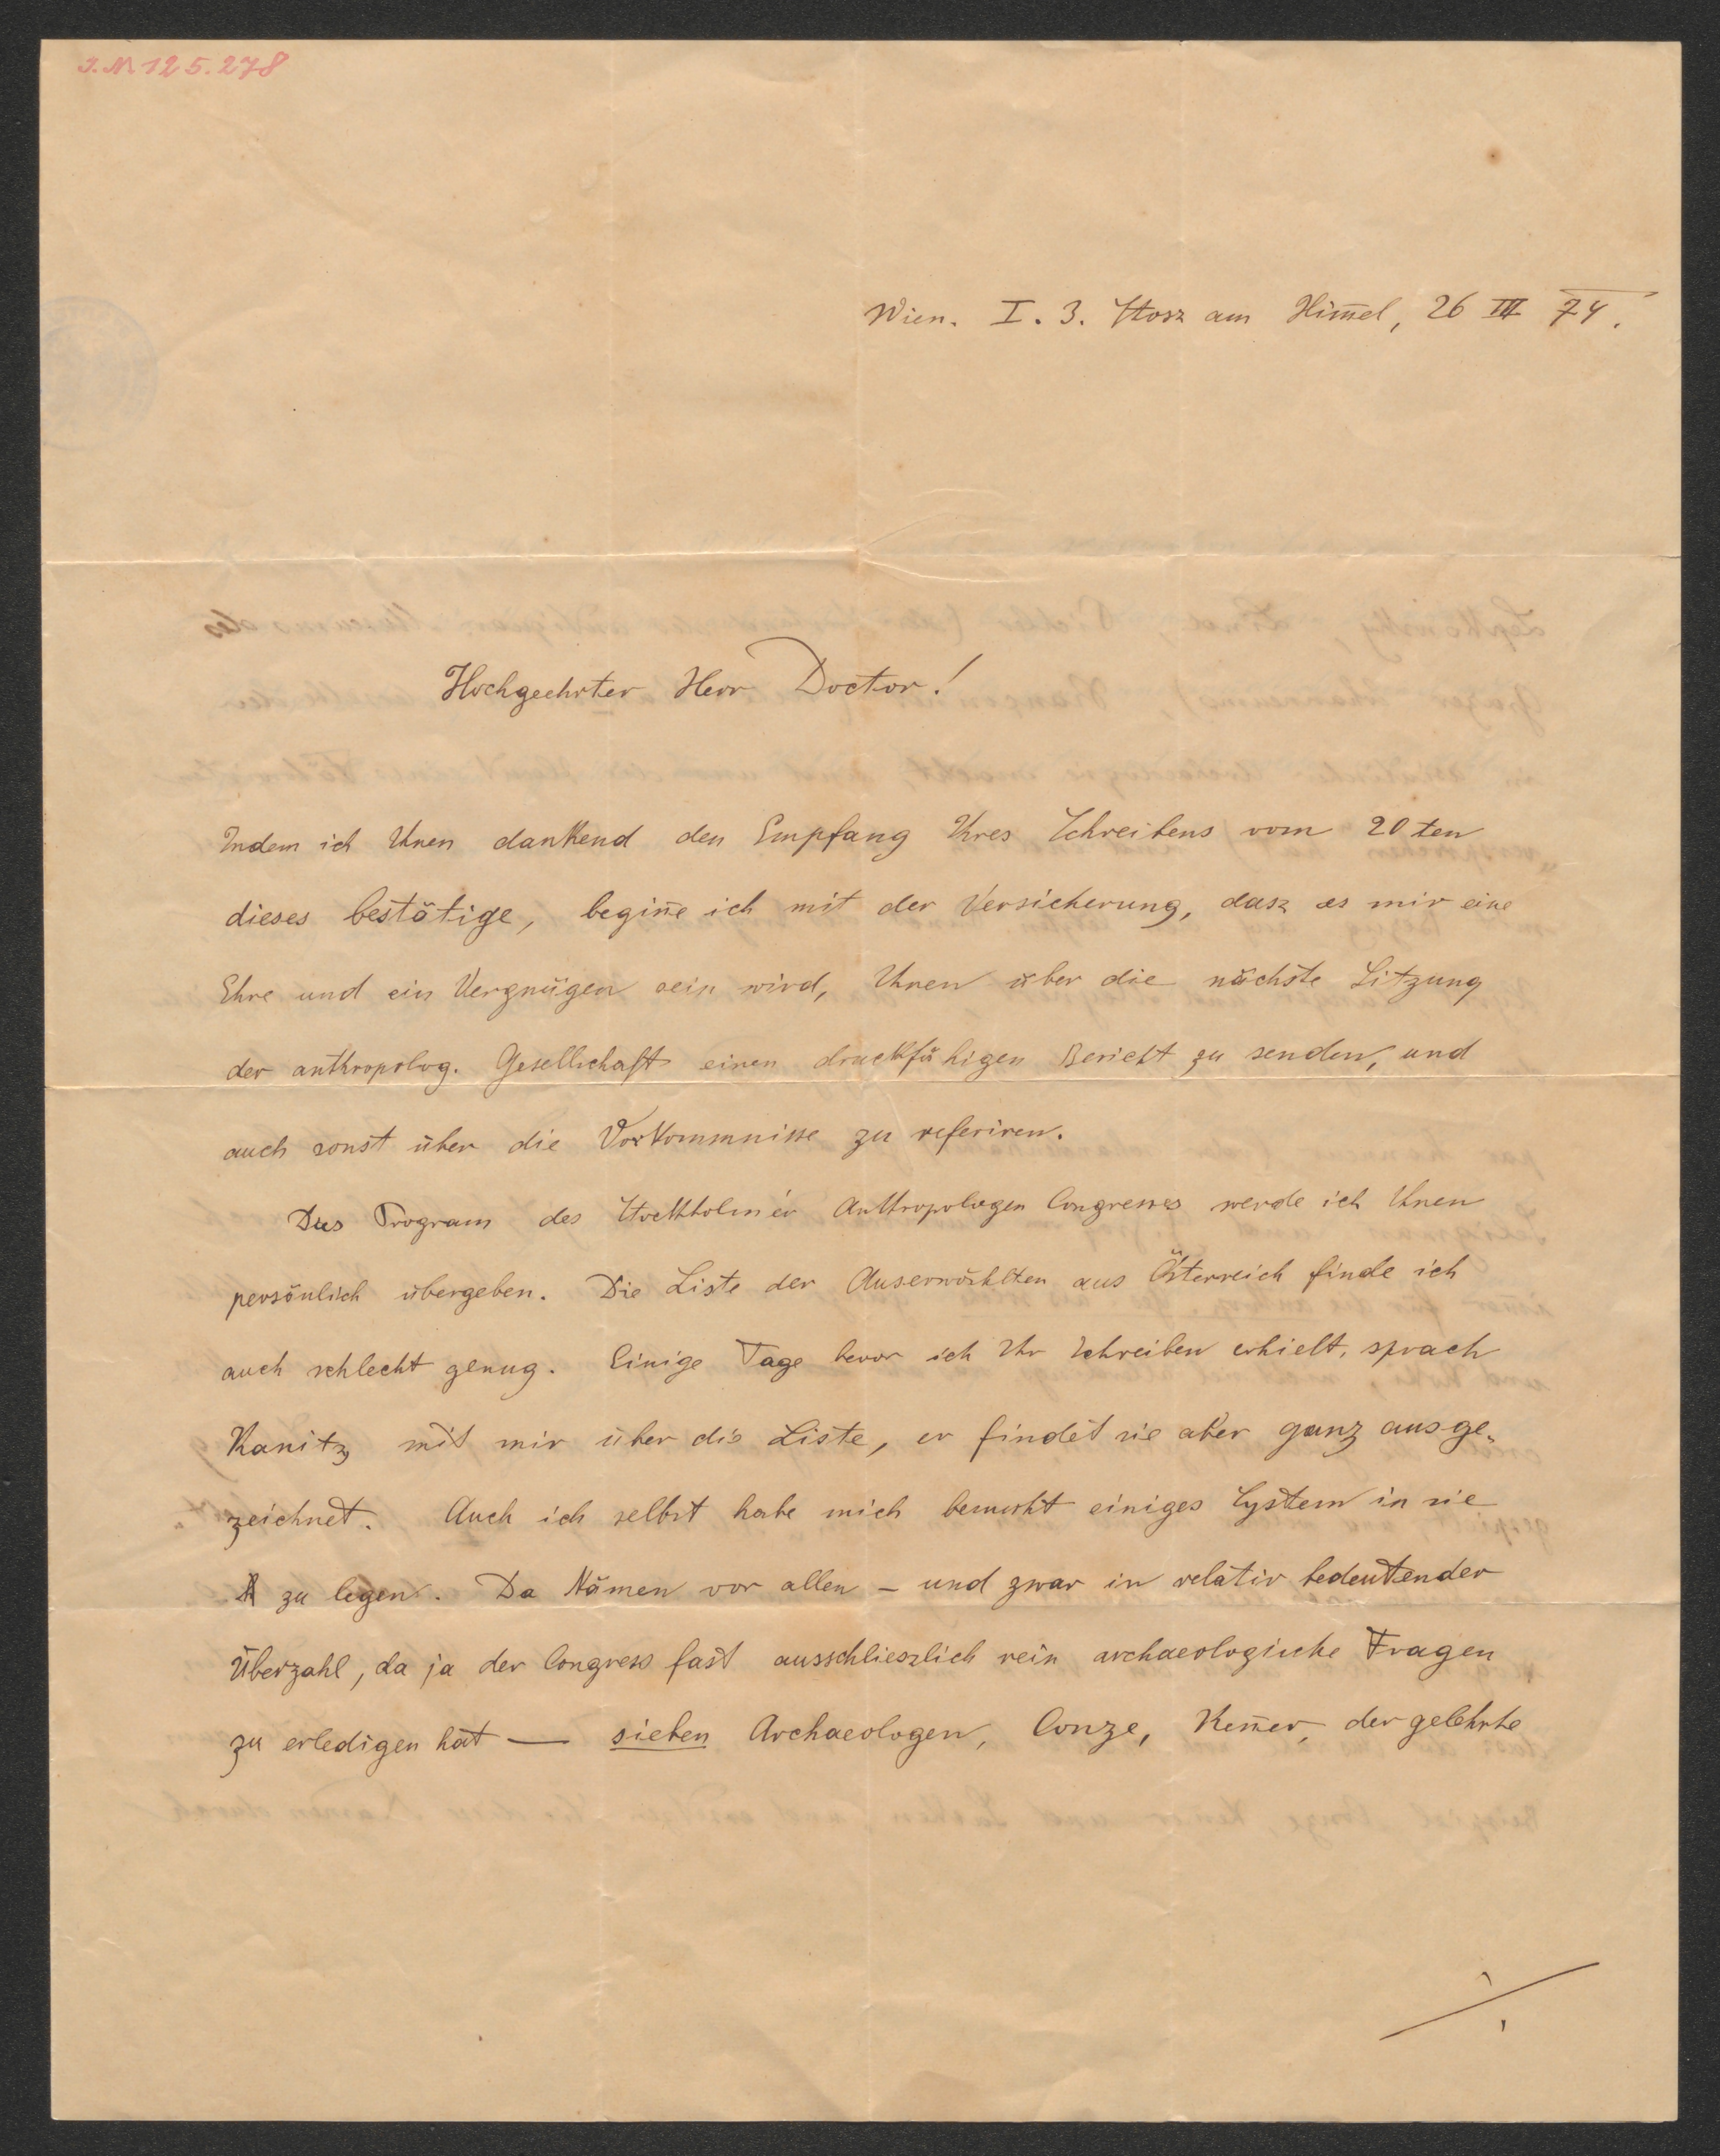 J.N. 125.278
Wien. I. 3. Stosz am Him̄el, 26 III 74.
Hochgeehrter Herr Doctor!
Indem ich Ihnen dankend den Empfang Ihres Schreibens vom 20ten
dieses bestätige, begin̄e ich mit der Versicherung, dasz es mir eine
Ehre und ein Vergnügen sein wird, Ihnen über die nächste Sitzung
der anthropolog. Gesellschaft einen druckfähigen Bericht zu senden, und
auch sonst über die Vorkommnisse zu referiren.
Das Program des Stockholmer Anthropologen Congresses werde ich Ihnen
persönlich übergeben. Die Liste der Auserwählten aus Österreich finde ich
auch schlecht genug. Einige Tage bevor ich Ihr Schreiben erhielt, sprach
Kanitz mit mir über die Liste, er findet sie aber ganz ausge-
zeichnet. Auch ich selbst habe mich bemüht einiges System in sie
zu legen. Da kämen vor allen – und zwar in relativ bedeutender
Überzahl, da ja der Congress fast ausschlieszlich rein archaeologische Fragen
zu erledigen hat — sieben Archaeologen, Conze, Ken̄er, der gelehrte
./.